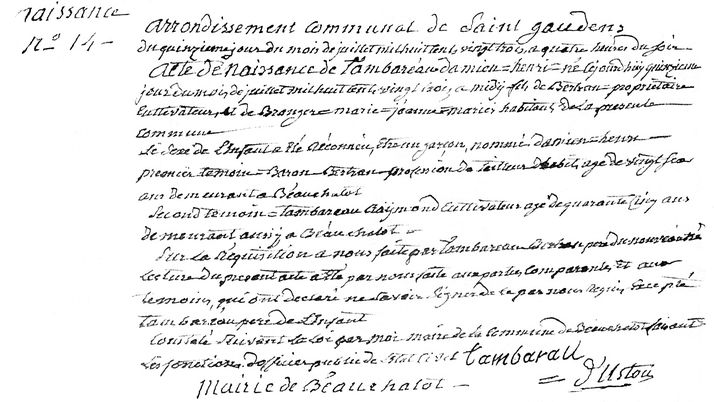 naissance
nº 14 –
arrondissement communal de Saint gaudens
du quinzieme jour du mois de juillet mil huit cent vingt trois, a quatre heures du soir
acte de naissance de tambareau damien = henri = né le jour d'huy quinzieme
jour du mois de juillet mil huit cent vingt trois, a midy fils de Bertran = propriétaire
Cultivateur, et de = marie = jeanne = mariés habitans de la presente
commune
Le Sexe de l'enfant a été Réconnu, être un garcon, nommé damien = henri
premier temoin = Baron Bertran profession de tailleur d'habit, age de vingt
ans demeurant a Béauchalot
Second temoin = tambareau Raymond Cultivateur agé de quarante Cinq ans
demeurant aussy a Béauchalot =
Sur la Réquisition a nous faite par tambareau pere du nouveau né
Lecture du present acte a été par nous faite aux parties comparantes Et aux
temoins, qui ont declaré ne Savoir Signer de ce par nous Réquis Excepté
tambareau pere de L'enfant
Constaté Suivant la Loi par Moi maire de la Commune de Béauchalot faisant
Les fonctions d'officier public de l'état Civil tambarau
Mairie de Béauchalot – = d'Ustou